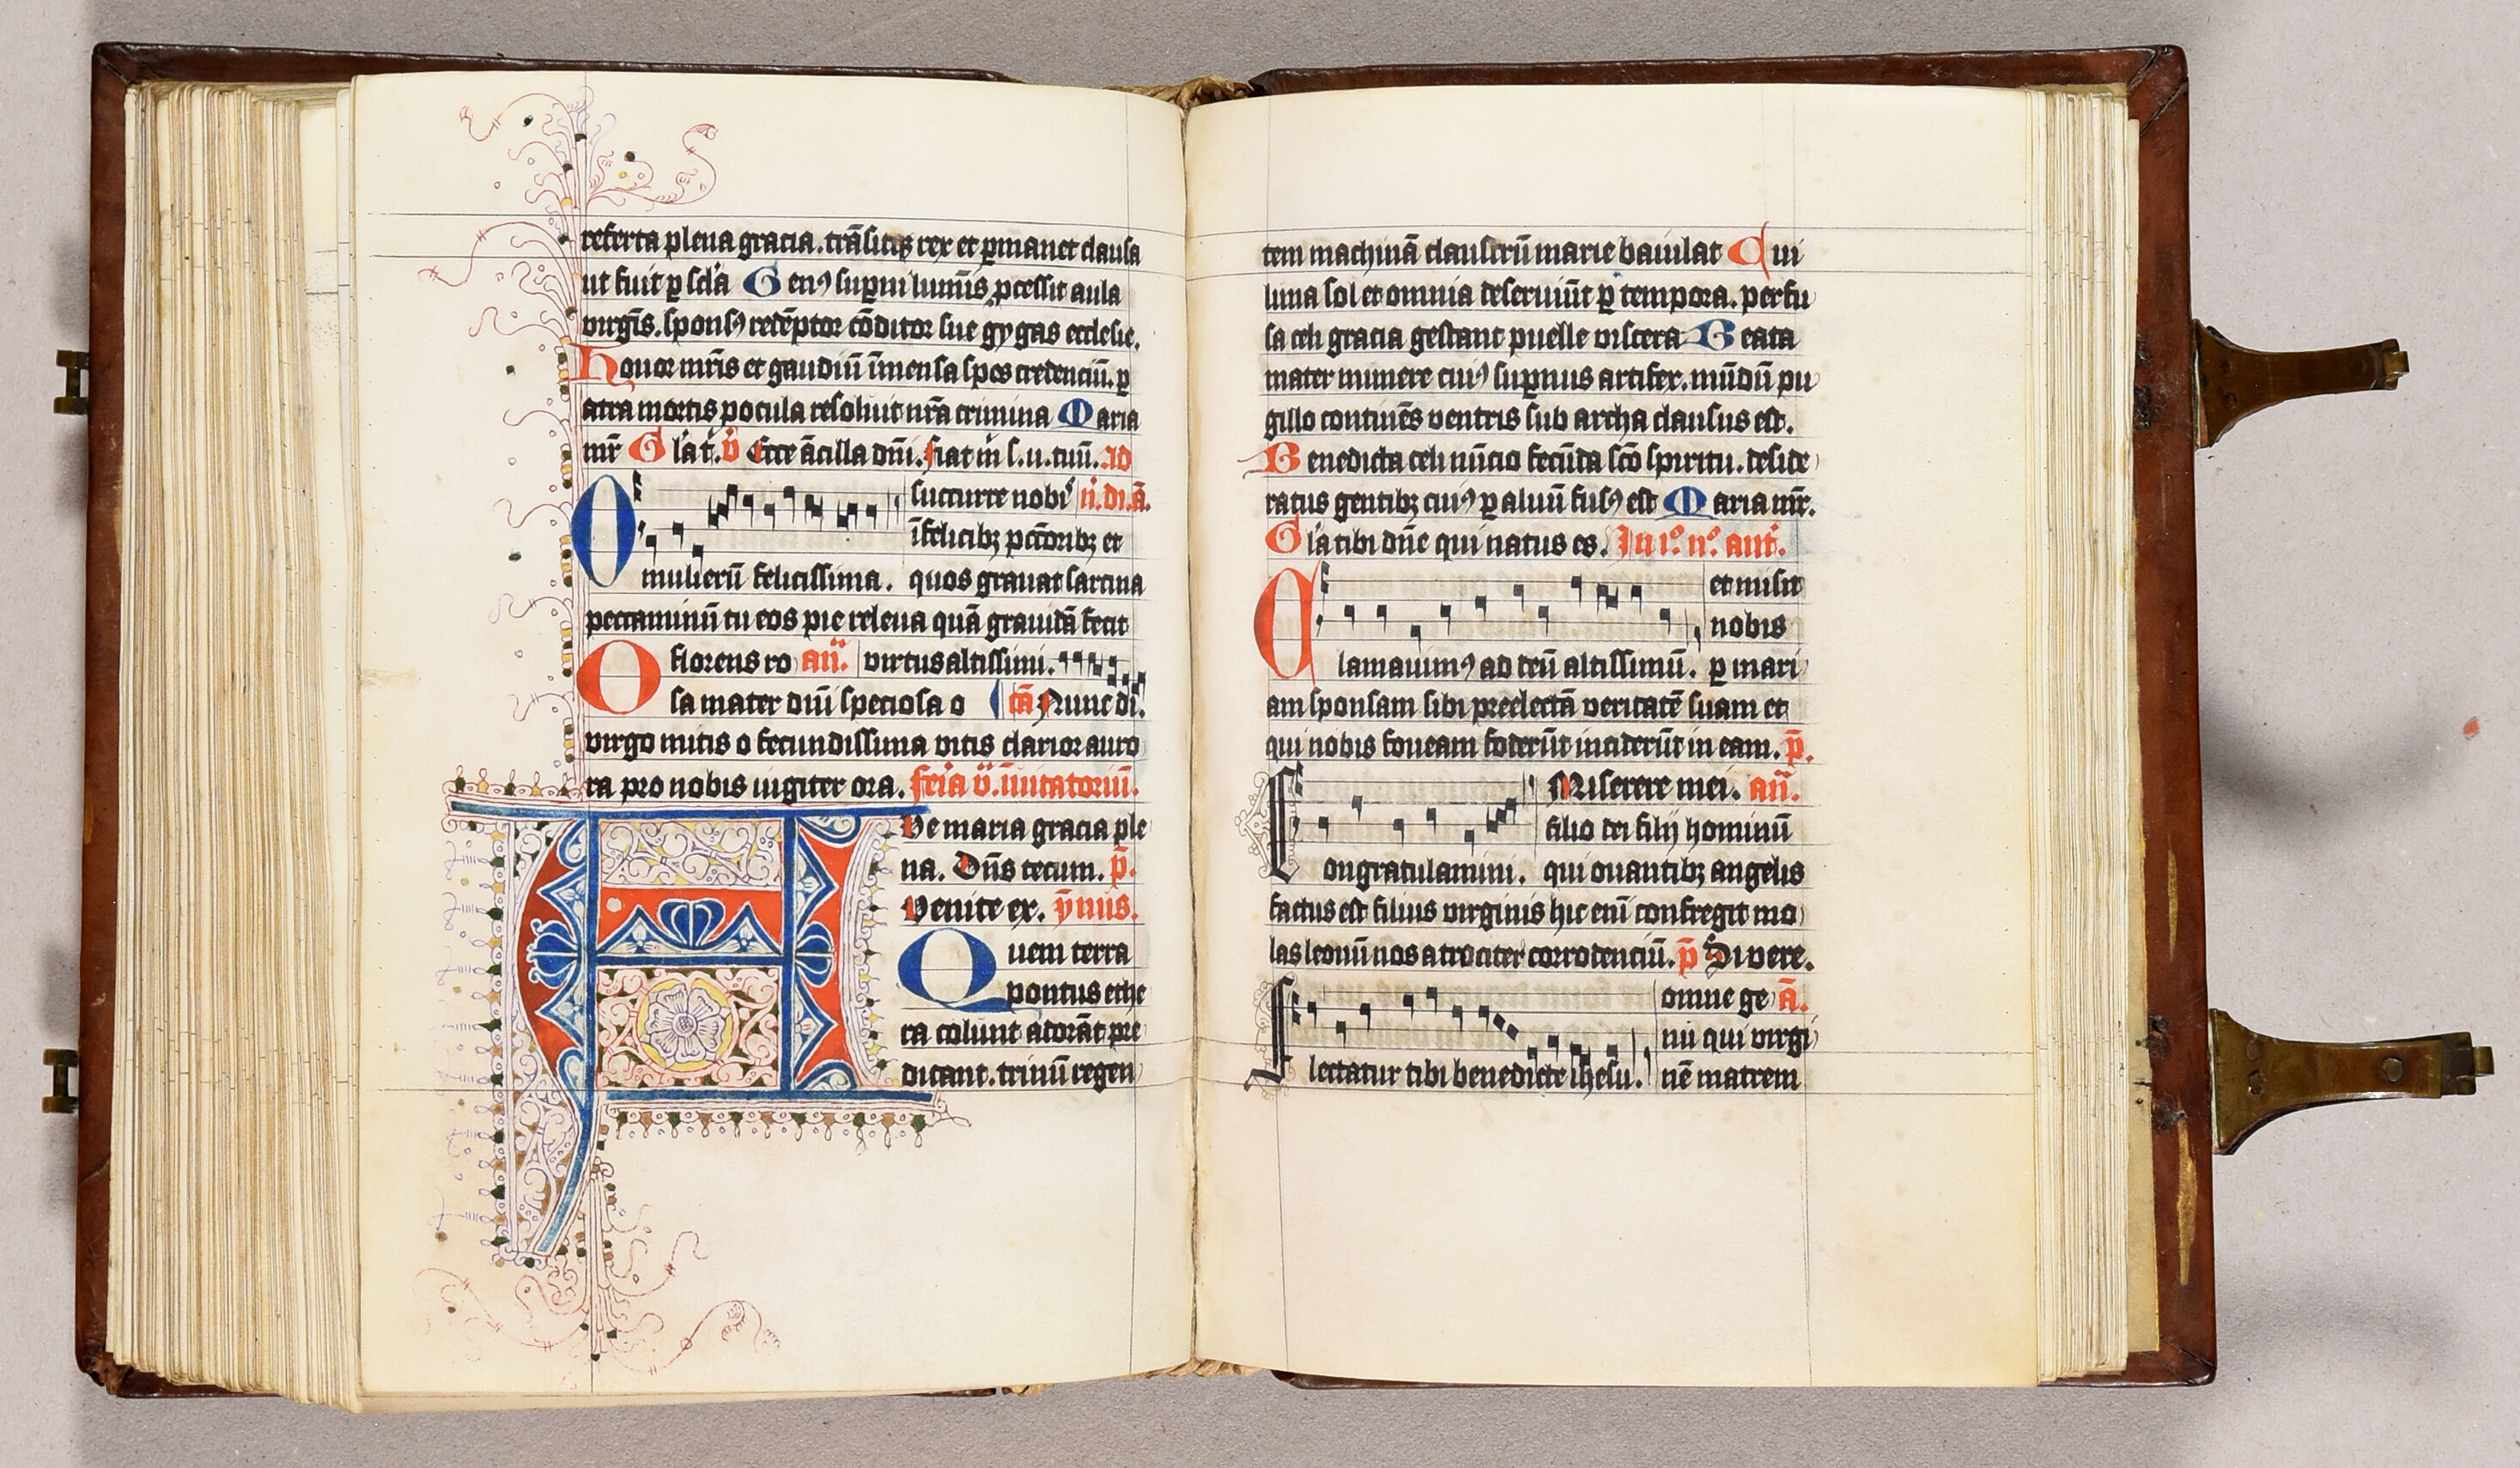 referta plena gracia. trāsitꝗ rex et ꝑmanet clausa
ut fuit ꝑ scl'a Genꝰ suꝑni lumīs ꝓcessit aula
virgīs. sponsꝰ redēptor cōditor sue gygas ecclesie.
Honor mr̄is et gaudiū īmensa spes credenciū. ꝑ
atra mortis pocula resoluit nr̄a crimina Maria
mr̄ Gl'a t'. v̄ Ecce ācilla dn̄i. fiat m̄ s. u. tuū. Ad
O succurre nobiꝰ n̄. di. ā.
īfelicibꝫ pctōribꝫ et
mulierū felicissima. quos grauat sarcina
peccaminū tu eos pie releua quā grauidā fecit
O florens ro an̄. virtus altissimi.
sa mater dn̄i speciosa o tā Nunc di.
virgo mitis o fecundissima vitis clarior auro
ra pro nobis iugiter ora. feria v. inuitatoriū.
Ave maria gracia ple
na. Dn̄s tecum. p̄.
Venite ex. ymnus.
Quem terra
pontus ethe
ra colunt adorāt pre
dicant. trinū regen
tem machinā claustrū marie baiulat Cui
luna sol et omnia deseruiūt ꝑ tempora. perfu
sa celi gracia gestant puelle viscera Beata
mater munere cuiꝰ suꝑnus artifex. mūdū pu
gillo continēs ventris sub archa clausus est.
Benedicta celi nūcio fecūda scō spiritu. deside
ratus gentibꝫ cuiꝰ ꝑ aluū fusꝰ est Maria mr̄.
Gl'a tibi dn̄e qui natus es. In 1º. nº. ant'.
C et misit
nobis
lamauimꝰ ad deū altissimū. ꝑ mari
am sponsam sibi preelectā veritatē suam et
qui nobis foueam foderūt inciderūt in eam. p̄.
C Miserere mei. an̄.
filio dei filij hominū
ongratulamini. qui ouantibꝫ angelis
factus est filius virginis hic enī confregit mo
las leonū nos atrociter corrodenciū. p̄ Si vere.
F omne ge ā.
nu qui virgi
lectatur tibi benedicte ihesu. nē matrem